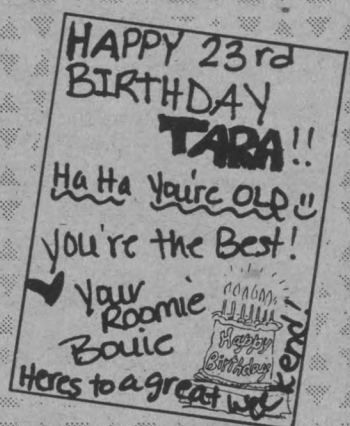 HAPPY 23rd
BIRTHDAY
TARA!!
Ha Ha You're OLD
you're the Best!
Your
Roomie
Bouie
Happy
Birthday
Heres to a great weekend!